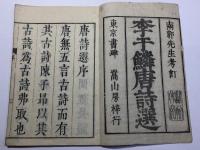 南郭先生考訂
李于鱗唐詩選
東京書肆 嵩山房梓行
唐詩選序
唐無五言古詩而有
其古詩陳子昂以其
古詩爲古詩弗取也